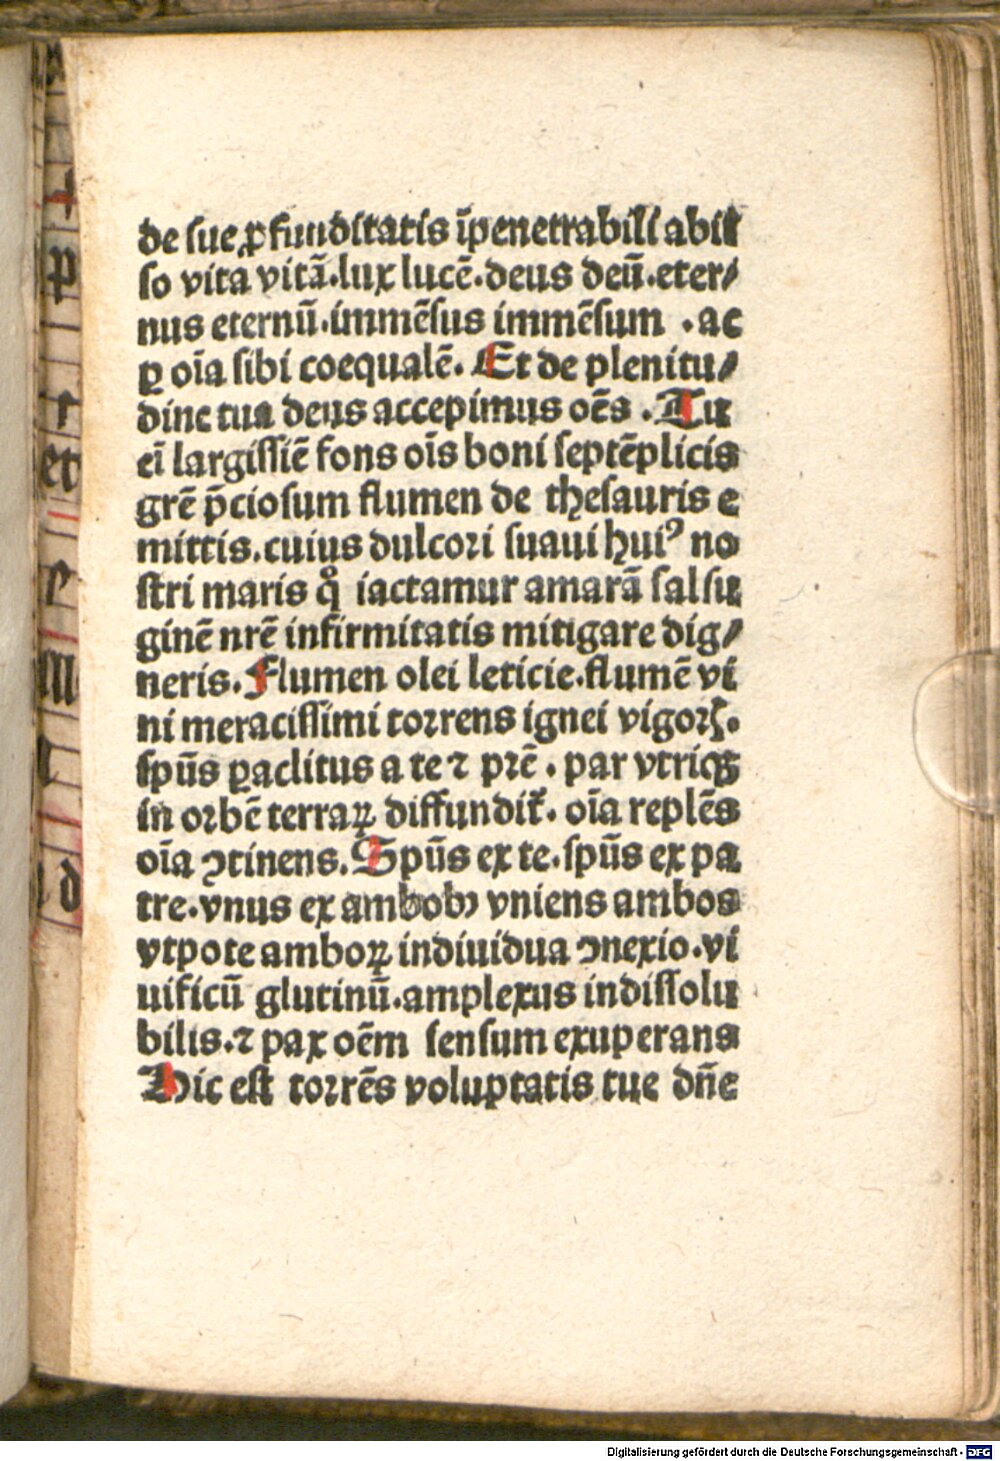 de sue ꝓfunditatis īpenetrabili abis
so vita vitā.lux lucē.deus deū.eter/
nus eternū.immēsus immēsum .ac
ꝑ oīa sibi coequalē. Et de plenitu/
dine tua deus accepimus oēs .Tu
eī largissiē fons oīs boni septēplicis
grē p̄ciosum flumen de thesauris e
mittis.cuius dulcori suaui huiꝰ no
stri maris qͦ iactamur amarā salsu
ginē nrē infirmitatis mitigare dig/
neris.Flumen olei leticie.flumē vi
ni meracissimi torrens ignei vigorꝭ.
spūs ꝑaclitus a te ⁊ prē . par vtriqꝫ
in orbē terraꝝ diffundit᷑. oīa replēs
oīa ꝯtinens.Spūs ex te.spūs ex pa
tre.vnus ex ambobꝰ vniens ambos
vtpote amboꝝ indiuidua ꝯnexio.vi
uificū glutinū.amplexus indissolu
bilis.⁊ pax oēm sensum exuperans
Hic est torrēs voluptatis tue dn̄e
Digitalisierung gefördert durch die Deutsche Forschungsgemeinschaft - DFG